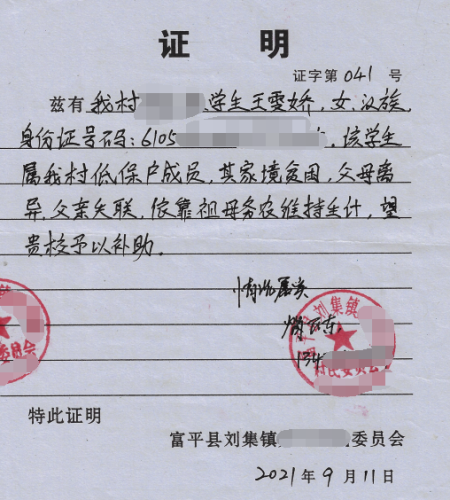 证 明
证字第 041 号
兹有 我村 学生王雯娇,女,汉族,
身份证号码:6105 ,该学生
属我村低保户成员,其家境贫困,父母离
异,父亲失联,依靠祖母务农维持生计,望
贵校予以补助。
情况属实
富平县刘集镇
村民委员会
委员会
特此证明
富平县刘集镇 委员会
2021 年 9 月 11 日